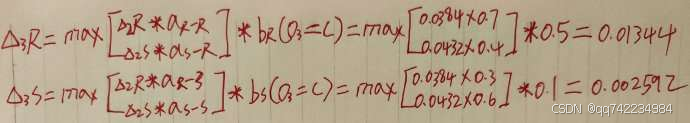 Δ₃R = max[Δ₂R * a_R-R
Δ₂S * a_S-R] * b_R(O₃=C) = max[0.0384×0.7
0.0432×0.4] * 0.5 = 0.01344
Δ₃S = max[Δ₂R * a_R-S
Δ₂S * a_S-S] * b_S(O₃=C) = max[0.0384×0.3
0.0432×0.6] * 0.1 = 0.002592
CSDN @qq742234984